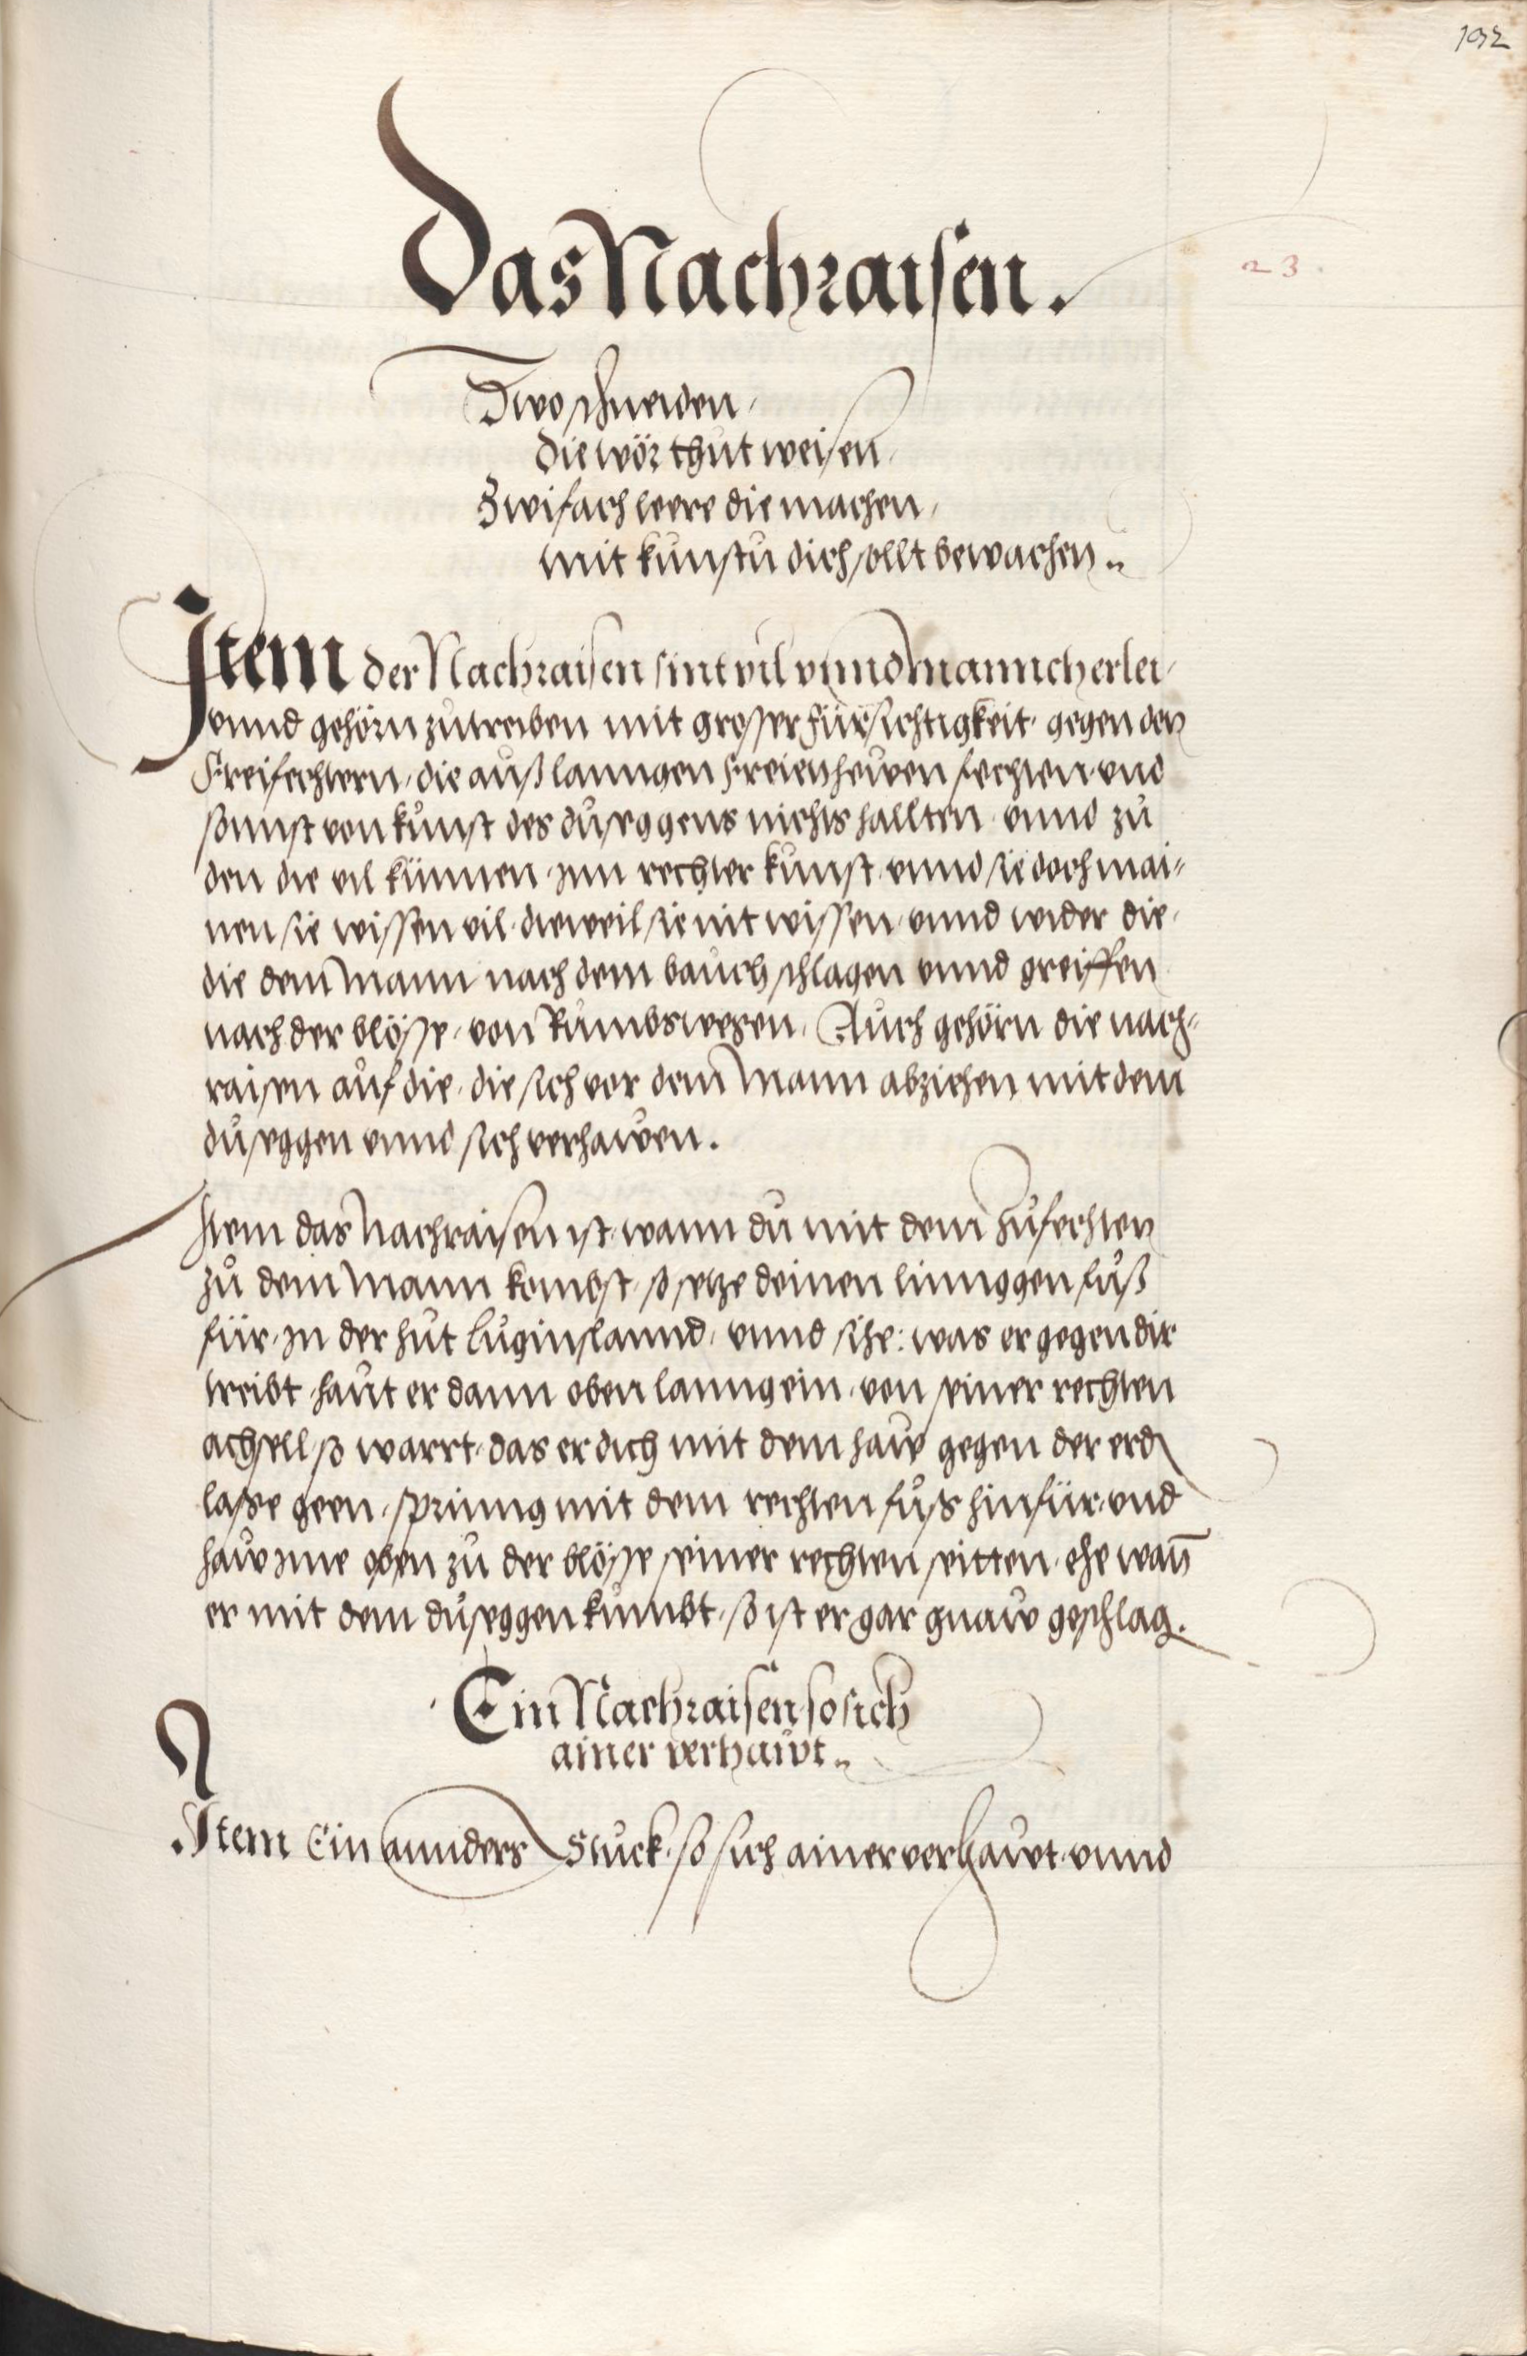 192
Das Nachraisen.
23.
Zwo schneiden,
die wör thut weisen,
Zwifach leere die machen,
mit kunst du dich sollt bewachen.
Item der Nachraisen sint vil vnnd manncherlei,
vnnd gehörn zutreiben mit grosser fürsichtigkeit, gegen den
Freifechtern, die auß lanngen freien hewen fechten, vnd
sonnst von kunst des dusęggens nichts hallten, vnnd zů
den die vil künnen, jnn rechter kunst, vnnd sie doch mai-
nen sie wissen vil, dieweil sie nit wissen, vnnd wider die,
die dem mann nach dem bauch schlagen vnnd greiffen
nach der blösse, von kumbswegen, Auch gehörn die nach-
raisen auf die, die sich vor dem Mann abziehen mit dem
dusęggen vnnd sich verhawen.
Item das Nachraisen ist, wann du mit dem zůfechten
zů dem mann kombst, so setze deinen linnggen fůß
für, jn der hůt luginslannd, vnnd sihe: was er gegen dir
treibt, haut er dann oben lanng ein, von seiner rechten
achsell, so warrt, das er dich mit dem haw gegen der erd
lasse geen, sprinng mit dem rechten fůß hinfür, vnd
haw jme oben zů der blösse seiner rechten seitten, ehe wan̄
er mit dem dusęggen kumbt, so ist er gar gnaw geschlag.
Ein Nachraisen so sich
ainer verhawt.
Item Ein annders Stuck, so sich ainer verhawt, vnnd